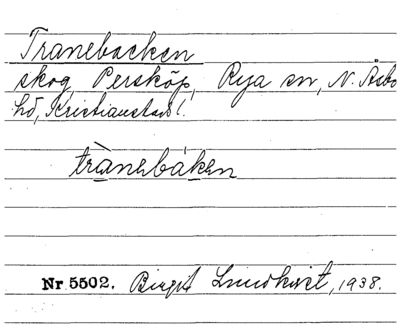 Tranebacken
skog, Persköp, Rya sn, N. Åsbo
hd, Kristianstads l.
trànebáken
Nr 5502. Birgit Lundkvist, 1938.